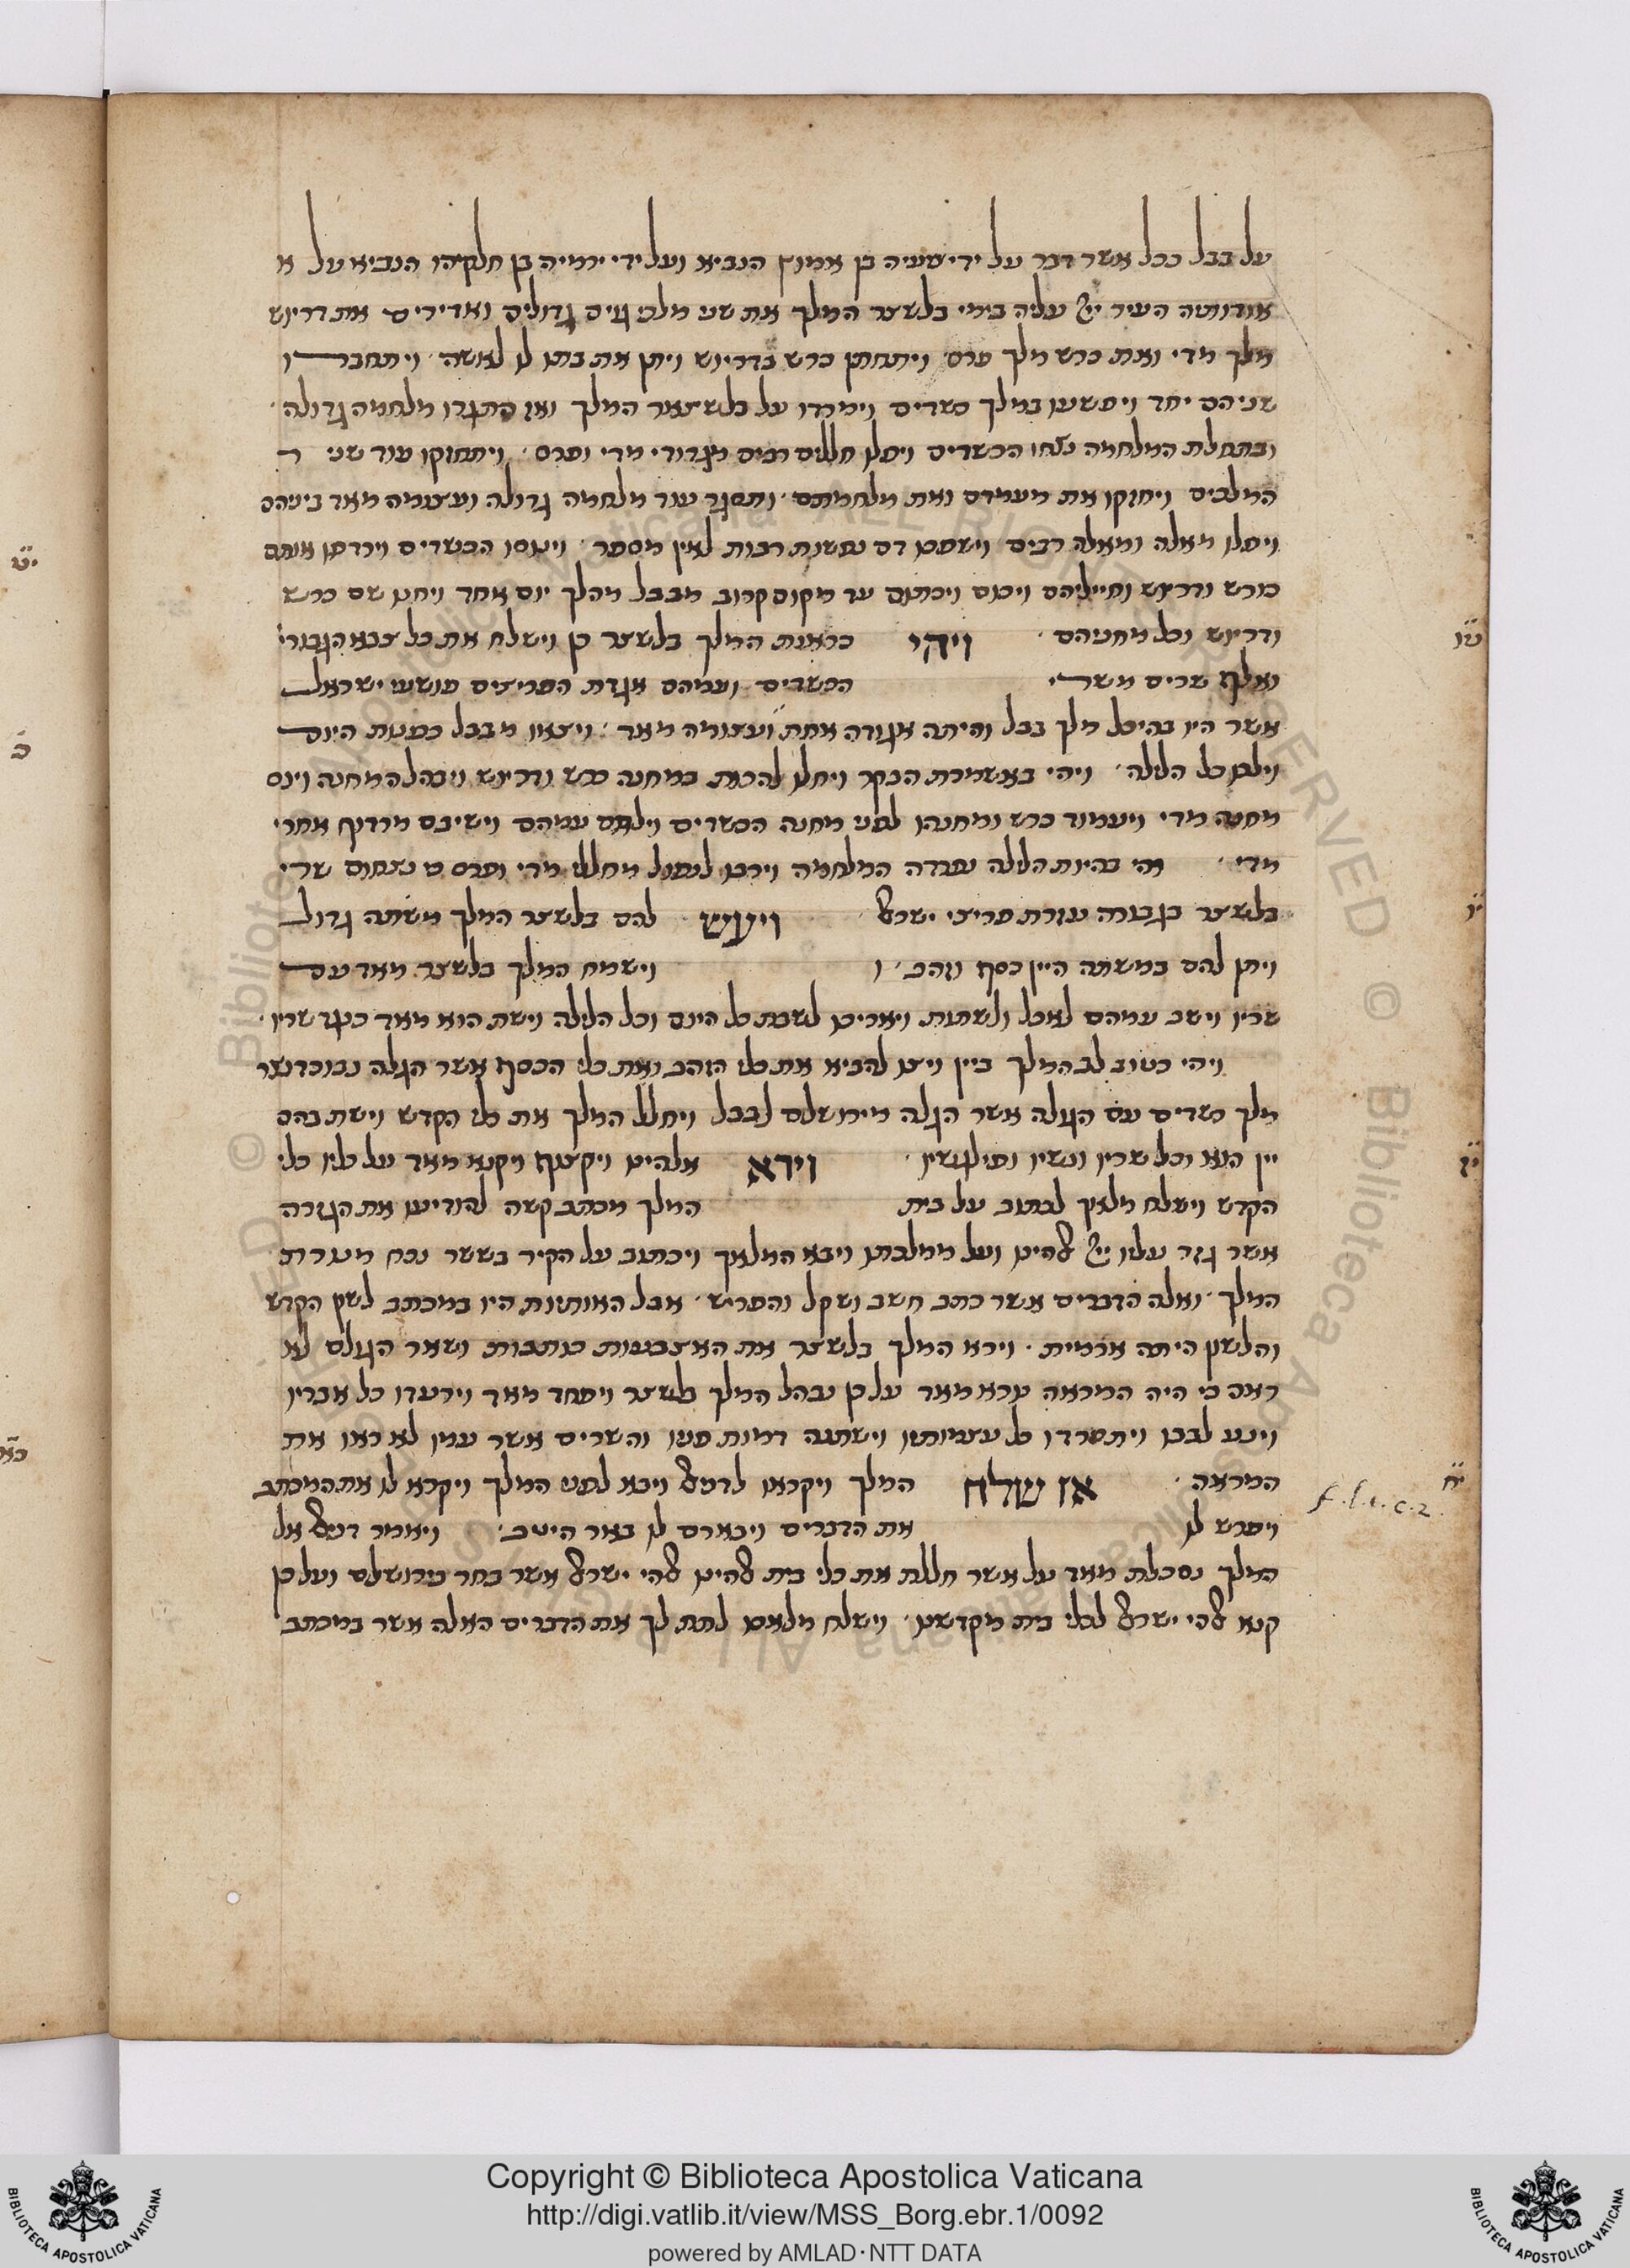 על בבל ככל אשר דבר על ידי ישעיה בן אמוץ הנביא ועל ידי ירמיה בן חלקיהו הנביא על א
אודותיה העיר ייי עליה בימי בלשצר המלך את שני מלכי גוים גדולים ואדירים את דריוש
מלך מדי ואת כרש מלך פרס ויתחתן כרש בדריוש ויתן את בתו לו לאשה ויתחברו
שניהם יחד ויפשעו במלך כשדים וימרדו על בלשצאר המלך ואז התגרו מלחמה גדולה
ובתחלת המלחמה נצחו הכשדים ויפלו חללים רבים מגדודי מדי ופרס ויתחזקו עוד שני ר
המלכים ויחזקו את מעמדם ואת מלחמתם ותסגר עוד מלחמה גדולה ועצומה מאד ביניהם
ויפלו מאלה ומאלה רבים וישפכו דם נפשות רבות לאין מספר וינוסו הכשדים וירדפו אותם
כורש ודריוש וחייליהם ויכום ויכתום עד מקום קרוב מבבל מהלך יום אחד ויחנו שם כרש
ודריוש וכל מחניהם ויהי כראות המלך בלשצר כן וישלח את כל צבא הגבורי
ואלף שרים משרי הכשדים ועמהם אגדת הפריצים פושעי ישראל
אשר היו בהיכל מלך בבל והיתה אגודה אחת ועצומה מאד ויצאו מבבל כפנות היום
וילכו כל הלילה ויהי באשמרת הבקר ויחלו להכות במחנה כרש ודריוש ויבהל המחנה וינס
מחנה מדי ויעמוד כרש ומחנהו לפני מחנה הכשדים וילחם עמהם וישיבם מרדוף אחרי
מדי ויהי בהיות הלילה נפרדה המלחמה וירבו לנפול מחללי מדי ופרס כי נצחום שרי
בלשצר בגבורה עזרת פריצי ישראל ויעש להם בלשצר המלך משתה גדול
ויתן להם במשתה היין כסף וזהב ו וישמח המלך בלשצר מאד עם
שריו וישב עמהם לאכל ולשתות ויאריכו לשבת כל היום וכל הלילה וישת הוא מאד כנגד שריו
ויהי כטוב לב המלך ביין ויצו להביא את כלי הזהב ואת כלי הכסף אשר הגלה נבוכדנצר
מלך כשדים עם הגולה אשר הגלה מירושלם לבבל ויחלל המלך את כלי הקדש וישת בהם
יין הוא וכל שריו ונשיו ופילגשיו וירא אלהים ויקצוף ויקנא מאד על כליו כלי
הקדש וישלח מלאך לכתוב על בית המלך מכתב קשה להודיעו את הגזרה
אשר גזר עליו ייי אלהים ועל ממלכתו ויבא המלאך ויכתוב על הקיר בששר נכח מנורת
המלך ואלה הדברים אשר כתב חשב ושקל והפריש אבל האותיות היו במכתב לשון הקדש
והלשון היתה ארמית וירא המלך בלשצר את האצבעות כותבות ושאר הגולם לא
ראה כי היה המראה נורא מאד על כן נבהל המלך בלשצר ויפחד מאד וירעדו כל אבריו
וינע לבבו ויתפרדו כל עצמותיו וישתנה דמות פניו והשרים אשר עמו לא ראו את
המראה אז שלח המלך ויקראו לדניאל ויבא לפני המלך ויקרא לו את המכתב
ויפרש לו את הדברים ויבארם לו באר היטב ויאמר דניאל אל
המלך נסכלת מאד על אשר חללת את כלי בית אלהים אלהי ישראל אשר בחר בירושלם ועל כן
קנא אלהי ישראל לכלי בית מקדשו וישלח מלאכו לתת לך את הדברים האלה אשר במכתב
טו
יו
יז
יח
f. l. i. c. 2.
יט
כ
Copyright © Biblioteca Apostolica Vaticana
http://digi.vatlib.it/view/MSS_Borg.ebr.1/0092
powered by AMLAD · NTT DATA
BIBLIOTECA APOSTOLICA VATICANA
BIBLIOTECA APOSTOLICA VATICANA